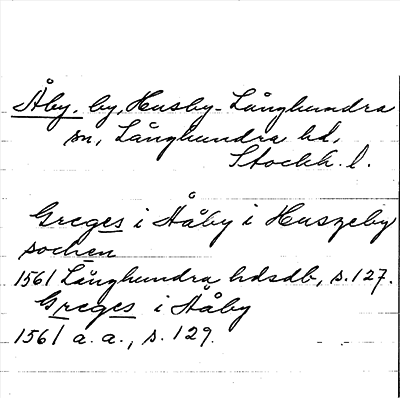 Åby. by, Husby-Långhundra
sn, Långhundra hd,
Stockh. l.
Greges i Ååby i Huszeby
sochen
1561 Långhundra hdsdb, s. 127.
Greges i Ååby
1561 a. a., s. 129.